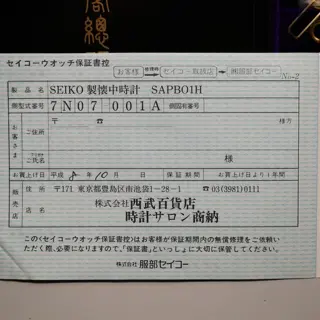 セイコーウオッチ保証書控
お客様 修理時 セイコー取扱店 ㈱服部セイコー
No-2
製品名 SEIKO 製懐中時計 SAPB01H
側型式番号 7N07 001A 側固有番号
お客さま ご住所 〒 様方
ご氏名 様
お買上げ日 平成 8年 10月 日 保証期間 お買上げ日より1年間
販売店 〒171 東京都豊島区南池袋1-28-1 ☎03(3981)0111
株式会社 西武百貨店
時計サロン商納
この<セイコーウオッチ保証書控>はお客様が保証期間内の無償修理をご依頼いただく際、必要になりますので、「保証書」といっしょに大切に保管してください。
株式会社 服部セイコー